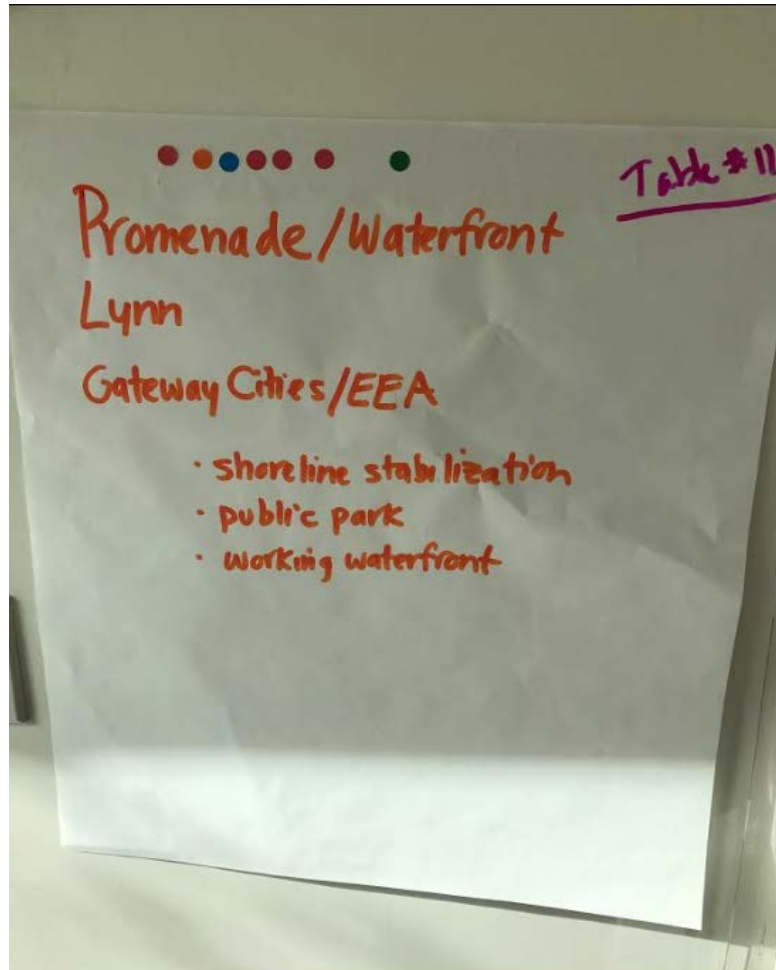 Table #11
Promenade/Waterfront
Lynn
Gateway Cities/EEA
· shoreline stabilization
· public park
· working waterfront